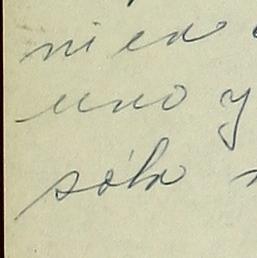 ni en
uno y
sólo